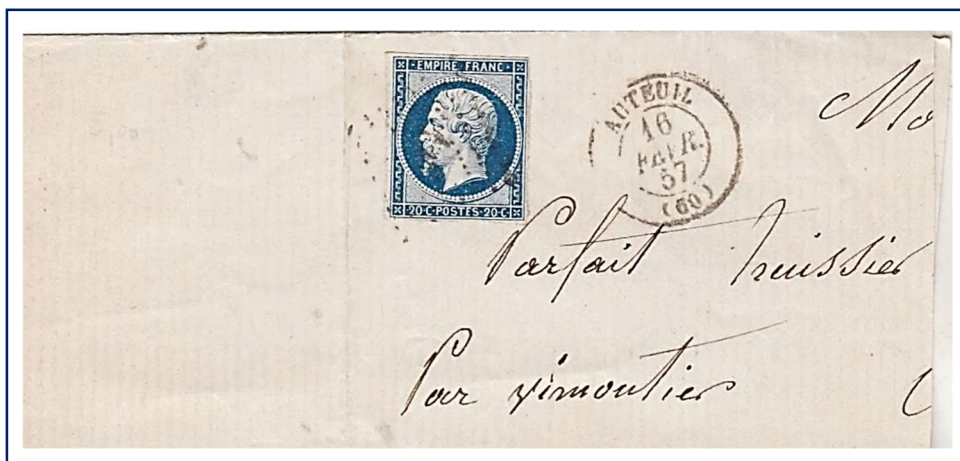 EMPIRE FRANC
20·C·POSTES·20·C
AUTEUIL
16
FEVR.
57
(60)
Mo
Parfait huissier
Par vimoutier